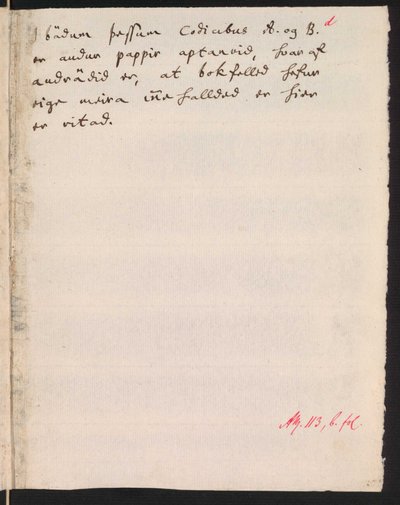 I bädum þessum Codicibus A. og B. d
er audur pappir aptanvid, hvar af
audrädid er, at bokfelled hefur
eige meira iñe hallded er hier
er ritad.
AM. 113, b. fol.